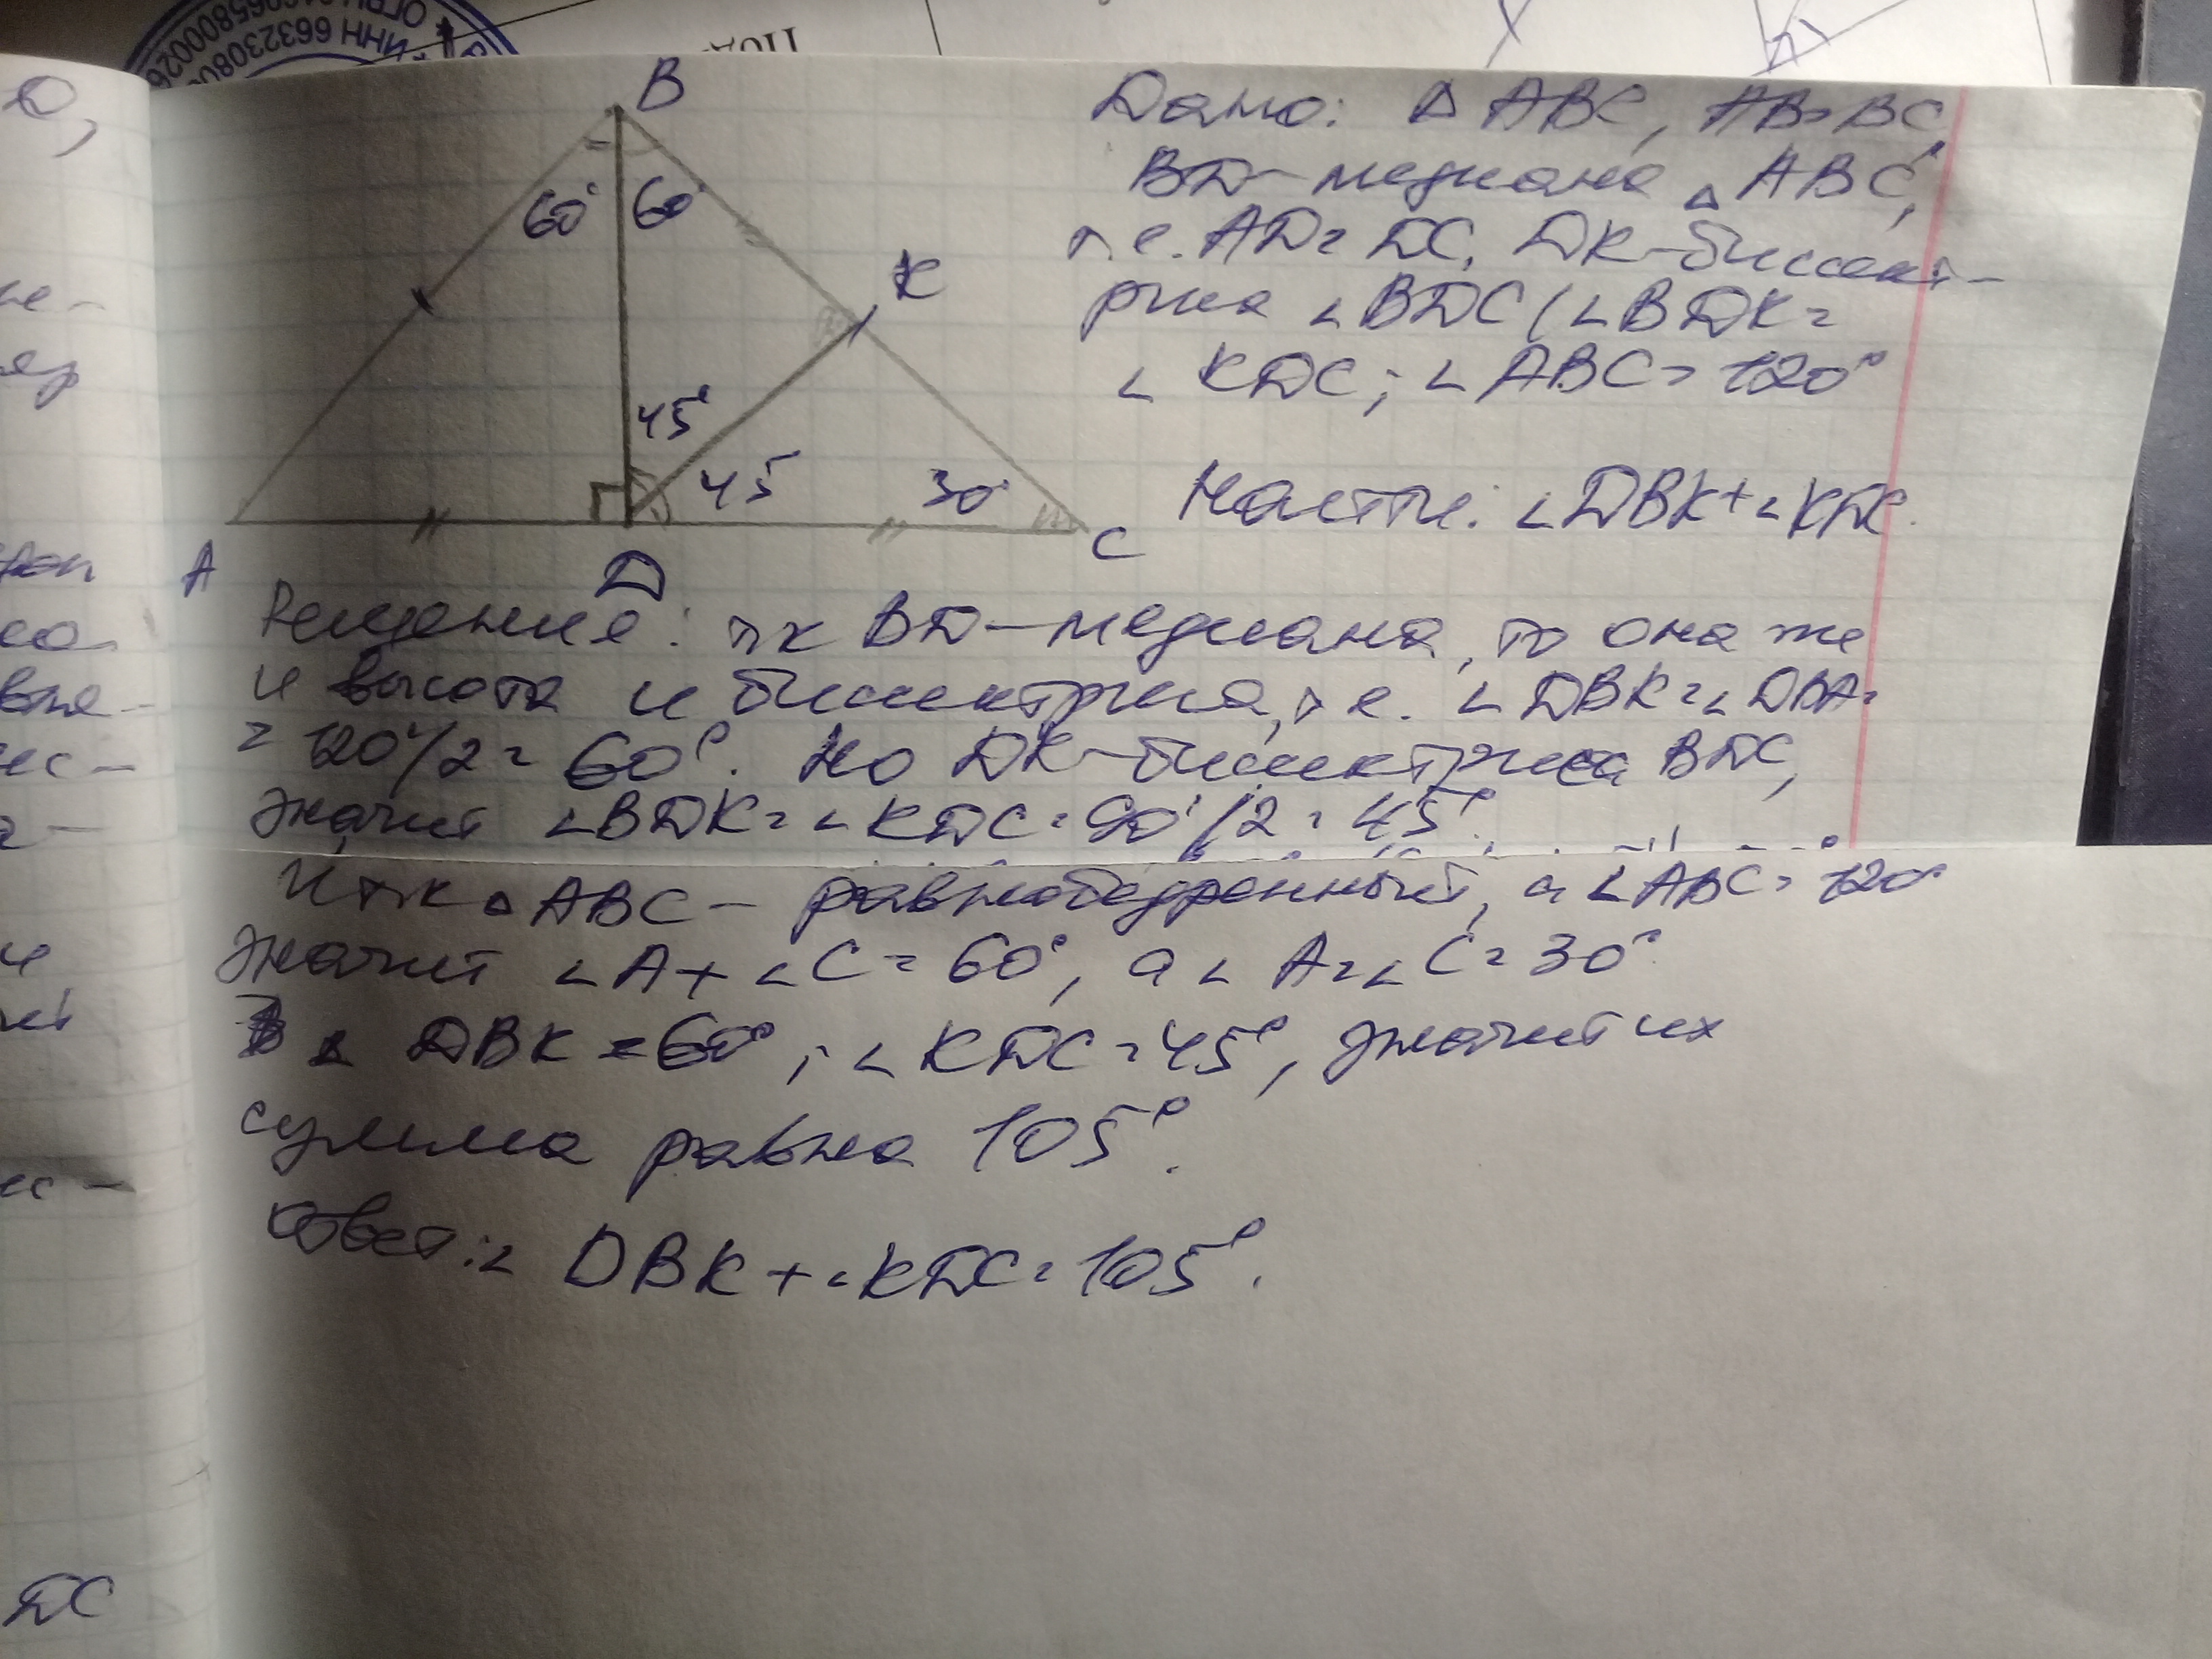 ОГРН
ИНН 6632308
B
60° 60°
K
45°
45 30°
A
D
C
Дано: △ ABC, AB=BC,
BD-медиана △ ABC,
т.е. AD=DC, DK-биссект-
риса ∠BDC (∠BDK=
∠ KDC; ∠ABC=120°
Найти: ∠DBK+∠KDC.
Решение: тк BD-медиана, то она же
и высота и биссектриса, т.е. ∠DBK=∠DBA=
=120°/2=60°. Но DK-биссектриса BDC,
значит ∠BDK=∠KDC=90°/2=45°.
И тк △ ABC - равнобедренный, а ∠ABC=120°
значит ∠A+∠C=60°, а ∠A=∠C=30°
∠ DBK=60°; ∠KDC=45°, значит их
сумма равна 105°.
Ответ: ∠ DBK+∠KDC=105°.
DC